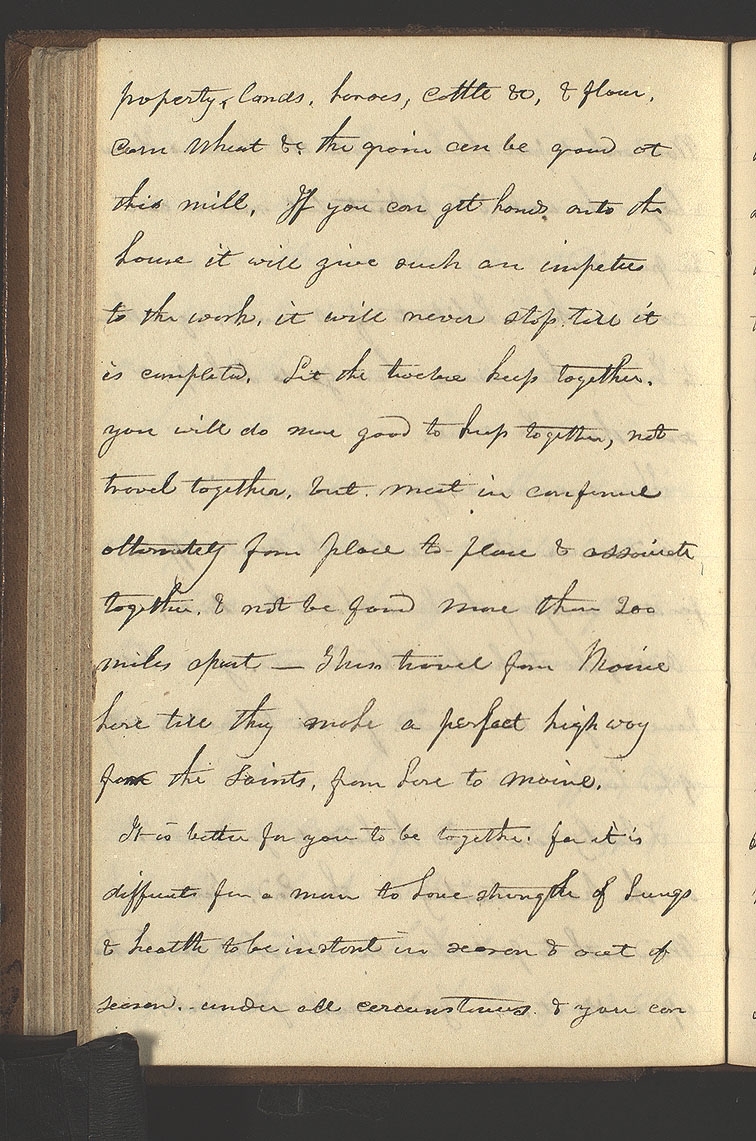 property, lands, horses, cattle &c, & flour,
corn wheat &c. the grain can be grond at
this mill. If you can get hands onto the
house it will give such an impetus
to the work, it will never stop till it
is completed. Let the twelve keep together.
you will do more good to keep together, not
travel together, but meet in conference
alternately from place to place & associate
together, & not be found more than 200
miles apart — Thus travel from Maine
here till they make a perfect highway
for the Saints, from here to Maine.
It is better for you to be together. for it is
difficult for a man to have strength of Lungs
& health to be instant in season & out of
season. under all circumstances. & you can